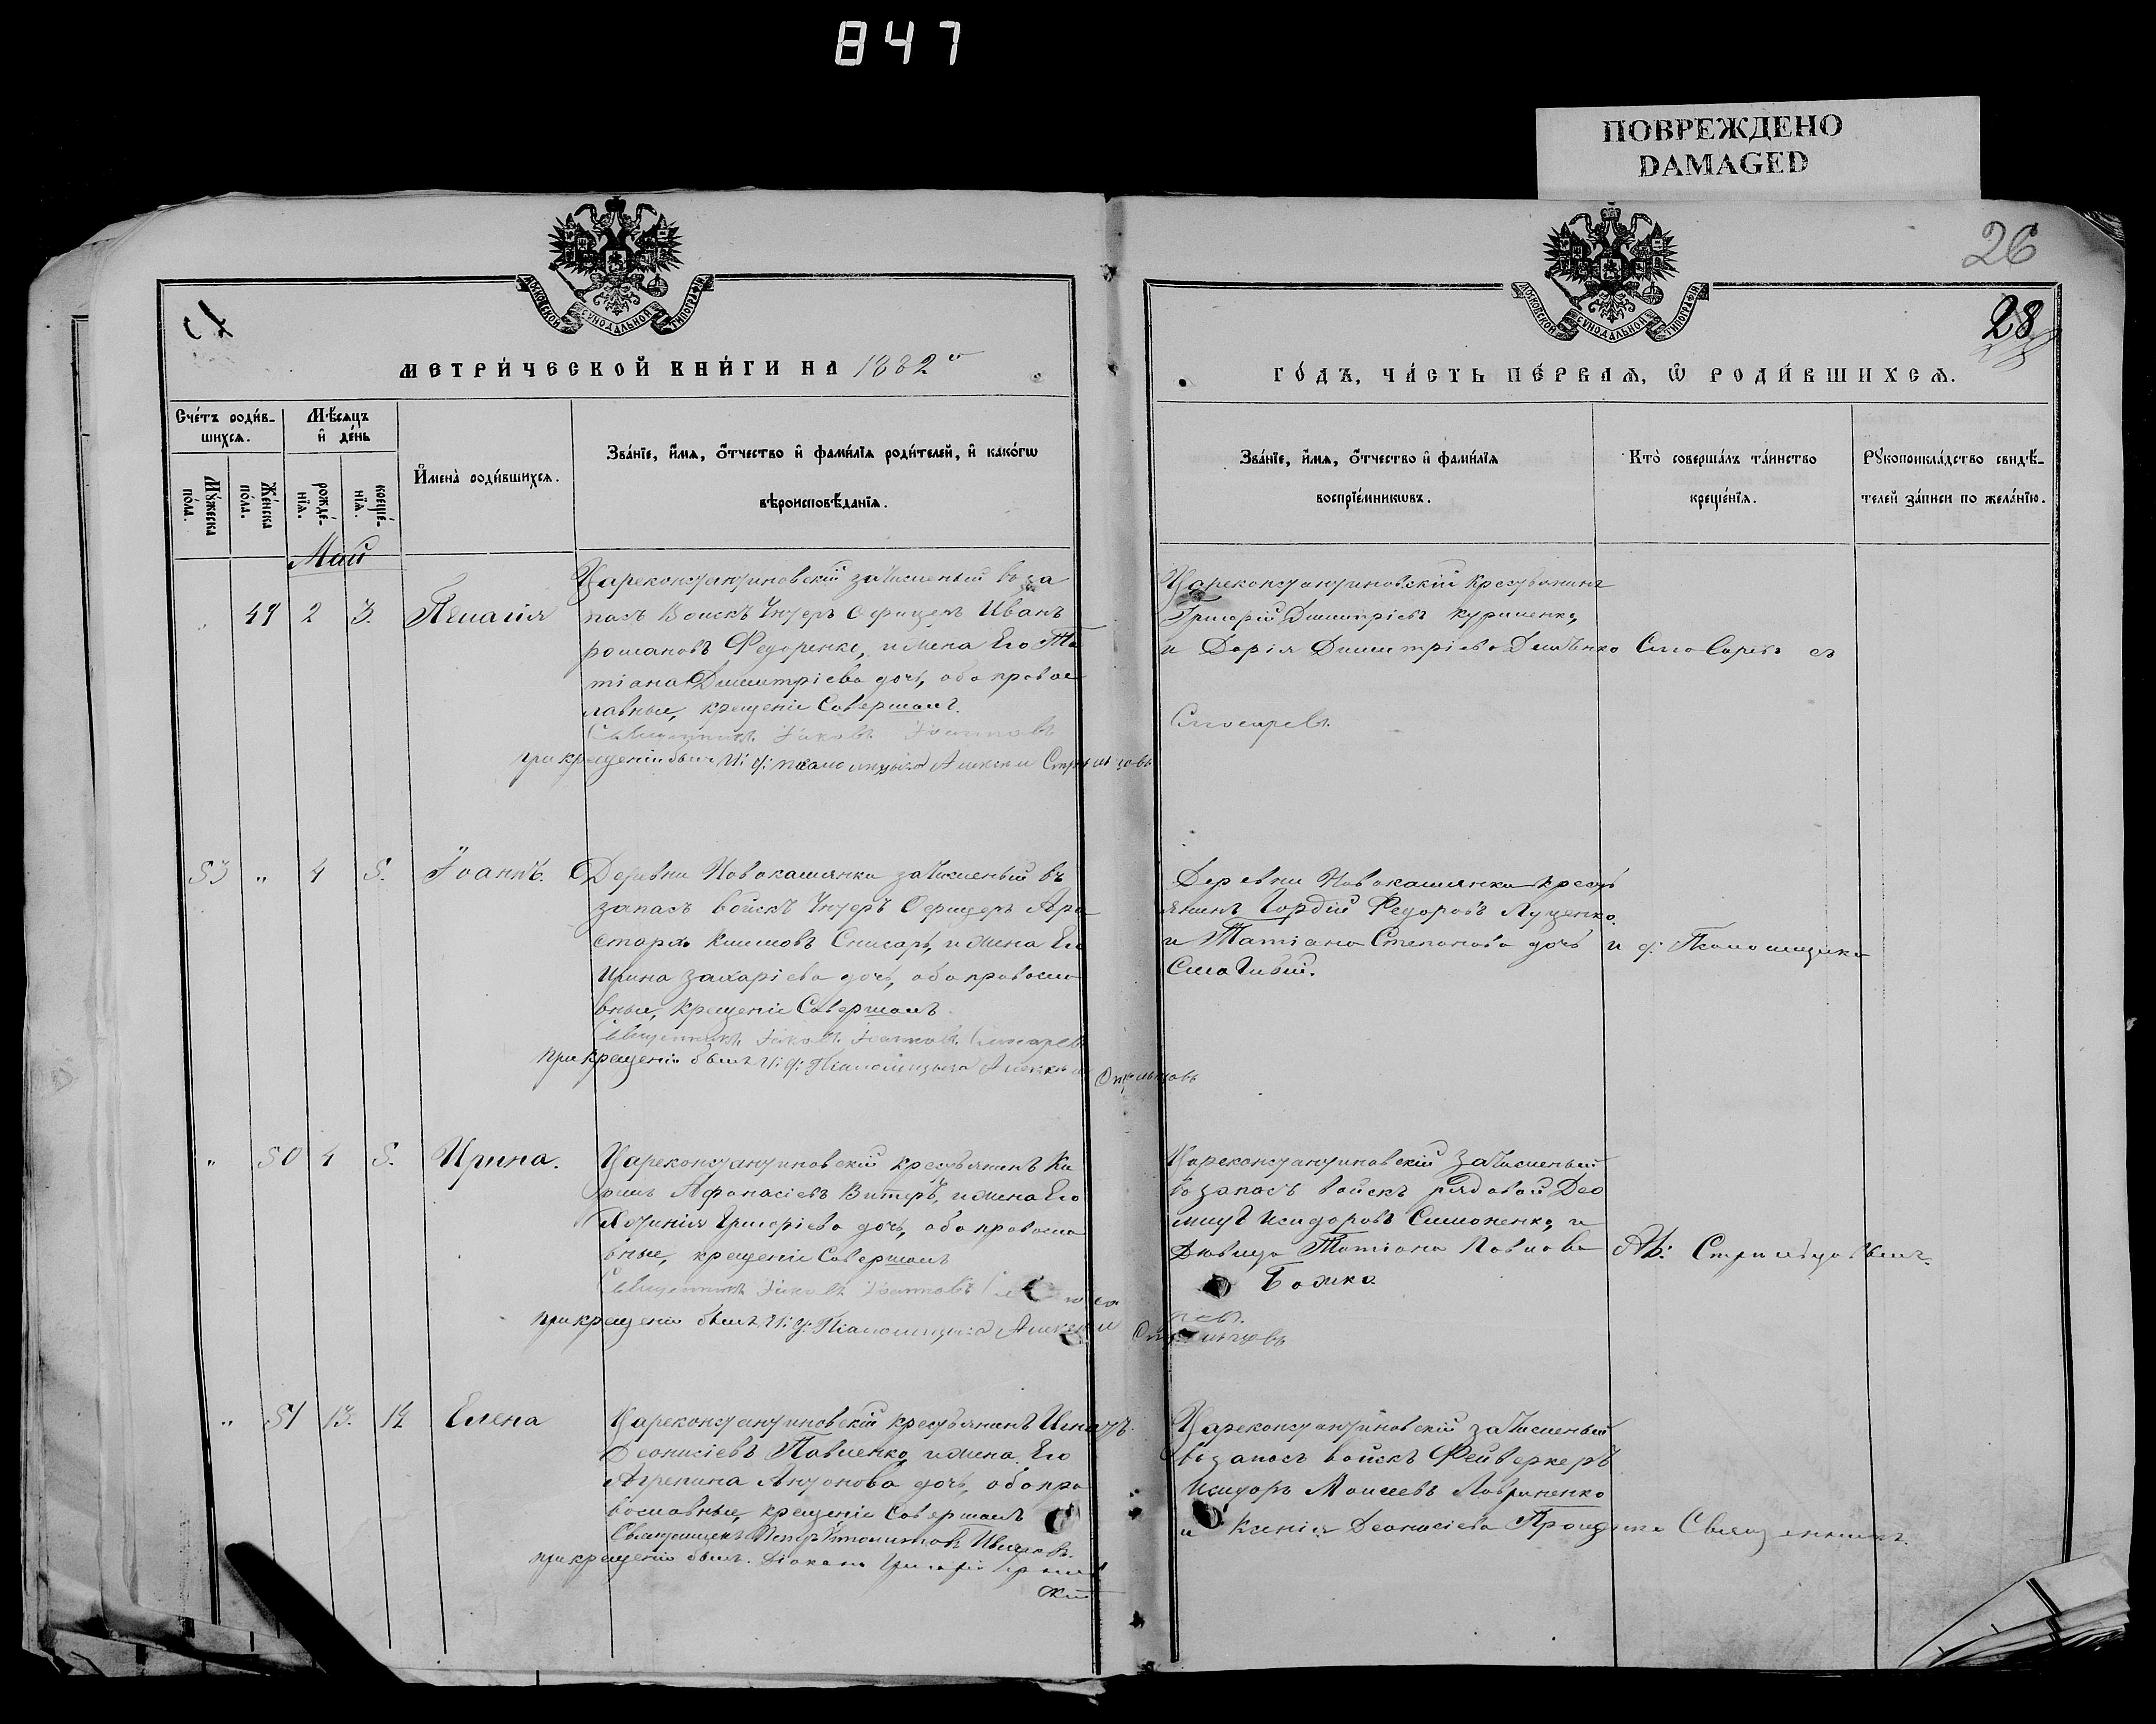 847
ПОВРЕЖДЕНО
DAMAGED
26
28
МОСКОВСКОЙ СУНОДАЛЬНОЙ ТИПОГРАФІИ
МОСКОВСКОЙ СУНОДАЛЬНОЙ ТИПОГРАФІИ
МЕТРИ́ЧЕСКОЙ КНИ́ГИ НА 1882 го
ГО́ДЪ, ЧА́СТЬ ПЕ́РВАѦ, Ѡ РОДИ́ВШИХСѦ.
Сче́тъ роди́в-
шихсѧ.
Мѣ́сѧцъ
и де́нь
Мꙋ́жеска
по́ла.
Же́нска
по́ла.
рожде́-
нїѧ.
креще́-
нїѧ.
И҆мена̀ роди́вшихсѧ.
Зва́нїе, и҆́мѧ, ѻ҆́тчество и҆ фами́лїѧ роди́телей, и҆ како́гѡ
вѣроисповѣ́данїѧ.
Зва́нїе, и҆́мѧ, ѻ҆́тчество и҆ фами́лїѧ
воспрїе́мникѡвъ.
Кто̀ соверша́лъ та́инство
креще́нїѧ.
Рꙋкоприкла́дство свидѣ́-
телей за́писи по жела́нїю.
Май
49 2 3. Пелагія
Цареконстантиновскій зачисленый воза
пасъ Войскъ Унтеръ Офицеръ Иванъ
романовъ Федоренко, и жена Его Та
тіана Димитріева дочь, оба правос
лавные, крещеніе Совершалъ.
Священникъ Іаковъ Іоанновъ
при крещеніи былъ И: д: псаломщика Алексѣй Стрильцовъ
Цареконстантиновскій крестьянинъ
Григорій Димитріевъ
и Дарія Димитріева
Слюсаревъ.
53 " 4 5. Іоаннъ.
Деревни Новокашлянки зачисленый въ
запасъ войскъ Унтеръ Офицеръ Ари
стархъ Климовъ Снисарь, и жена Его
Ирина Захаріева дочь, оба правосла
вные, крещеніе Совершалъ
Священникъ Іаковъ Іоанновъ Слюсаревъ
при крещеніи былъ И: д: Псаломщика Алексѣй Стрильцовъ
Деревни Новокашлянки кресть
янинъ Гордій Федоровъ Луценко.
и Татіана Степанова дочь и д: Псаломщика
" 50 4 5. Ирина.
Цареконстантиновскій крестьянинъ Ки
рилъ Афанасіевъ Витеръ, и жена Его
Хотинія Григоріева дочь, оба правосла
вные, крещеніе Совершалъ
Священникъ Іаковъ Іоанновъ
при крещеніи былъ И: д: Псаломщика Алексѣй Стрильцовъ
Цареконстантиновскій зачисленый
возапасъ войскъ рядовой Део
мидъ Исидоровъ Симоненко, и
Дѣвица Татіана Павлова
Божко
" 51 13. 14 Елена
Цареконстантиновскій крестьянинъ Игнатъ
Деонисіевъ Павленко, и жена Его
Агрепина Антонова дочь, оба пра
вославные, крещеніе Совершалъ
Священникъ Петръ
при крещеніи былъ Діаконъ Григорій
Цареконстантиновскій зачисленый
возапасъ войскъ Фейверкеръ
Исидоръ Моисеевъ Лавриненко
и Ксенія Деонисіева Священникъ.